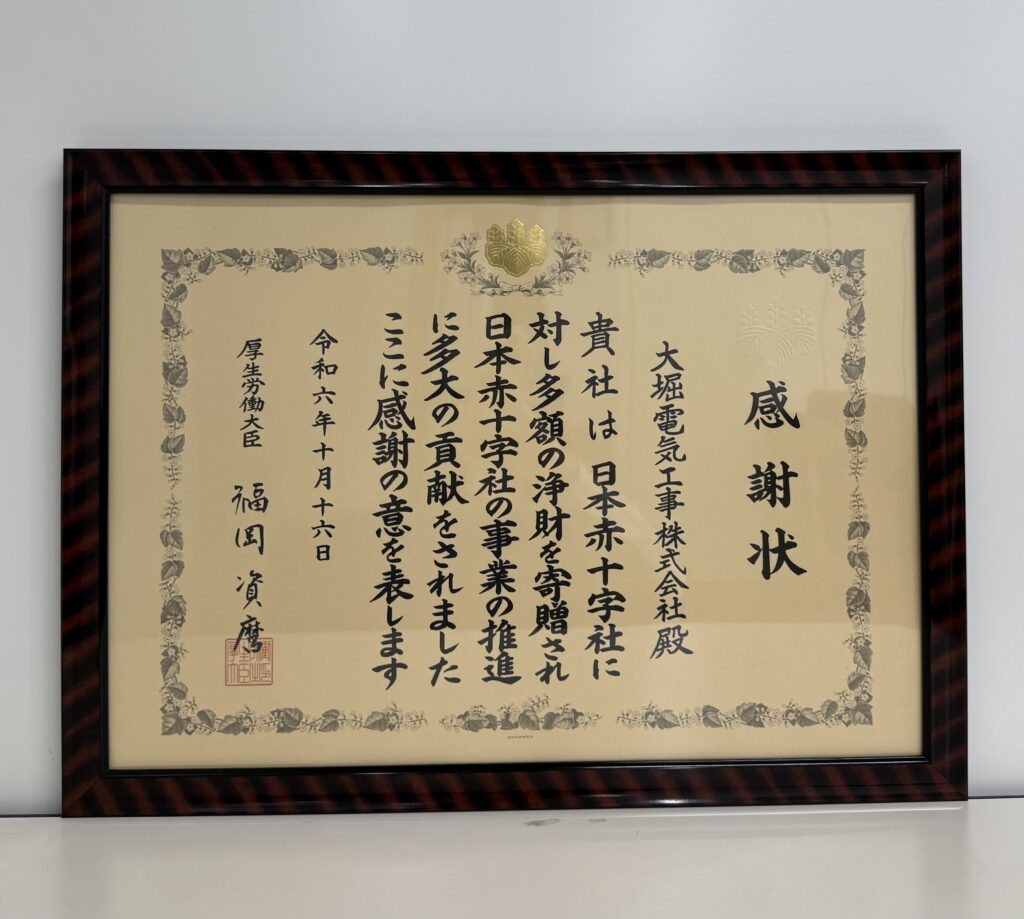 感謝状
大堀電気工事株式会社殿
貴社は日本赤十字社に
対し多額の浄財を寄贈され
日本赤十字社の事業の推進
に多大の貢献をされました
ここに感謝の意を表します
令和六年十月十六日
厚生労働大臣 福岡資麿